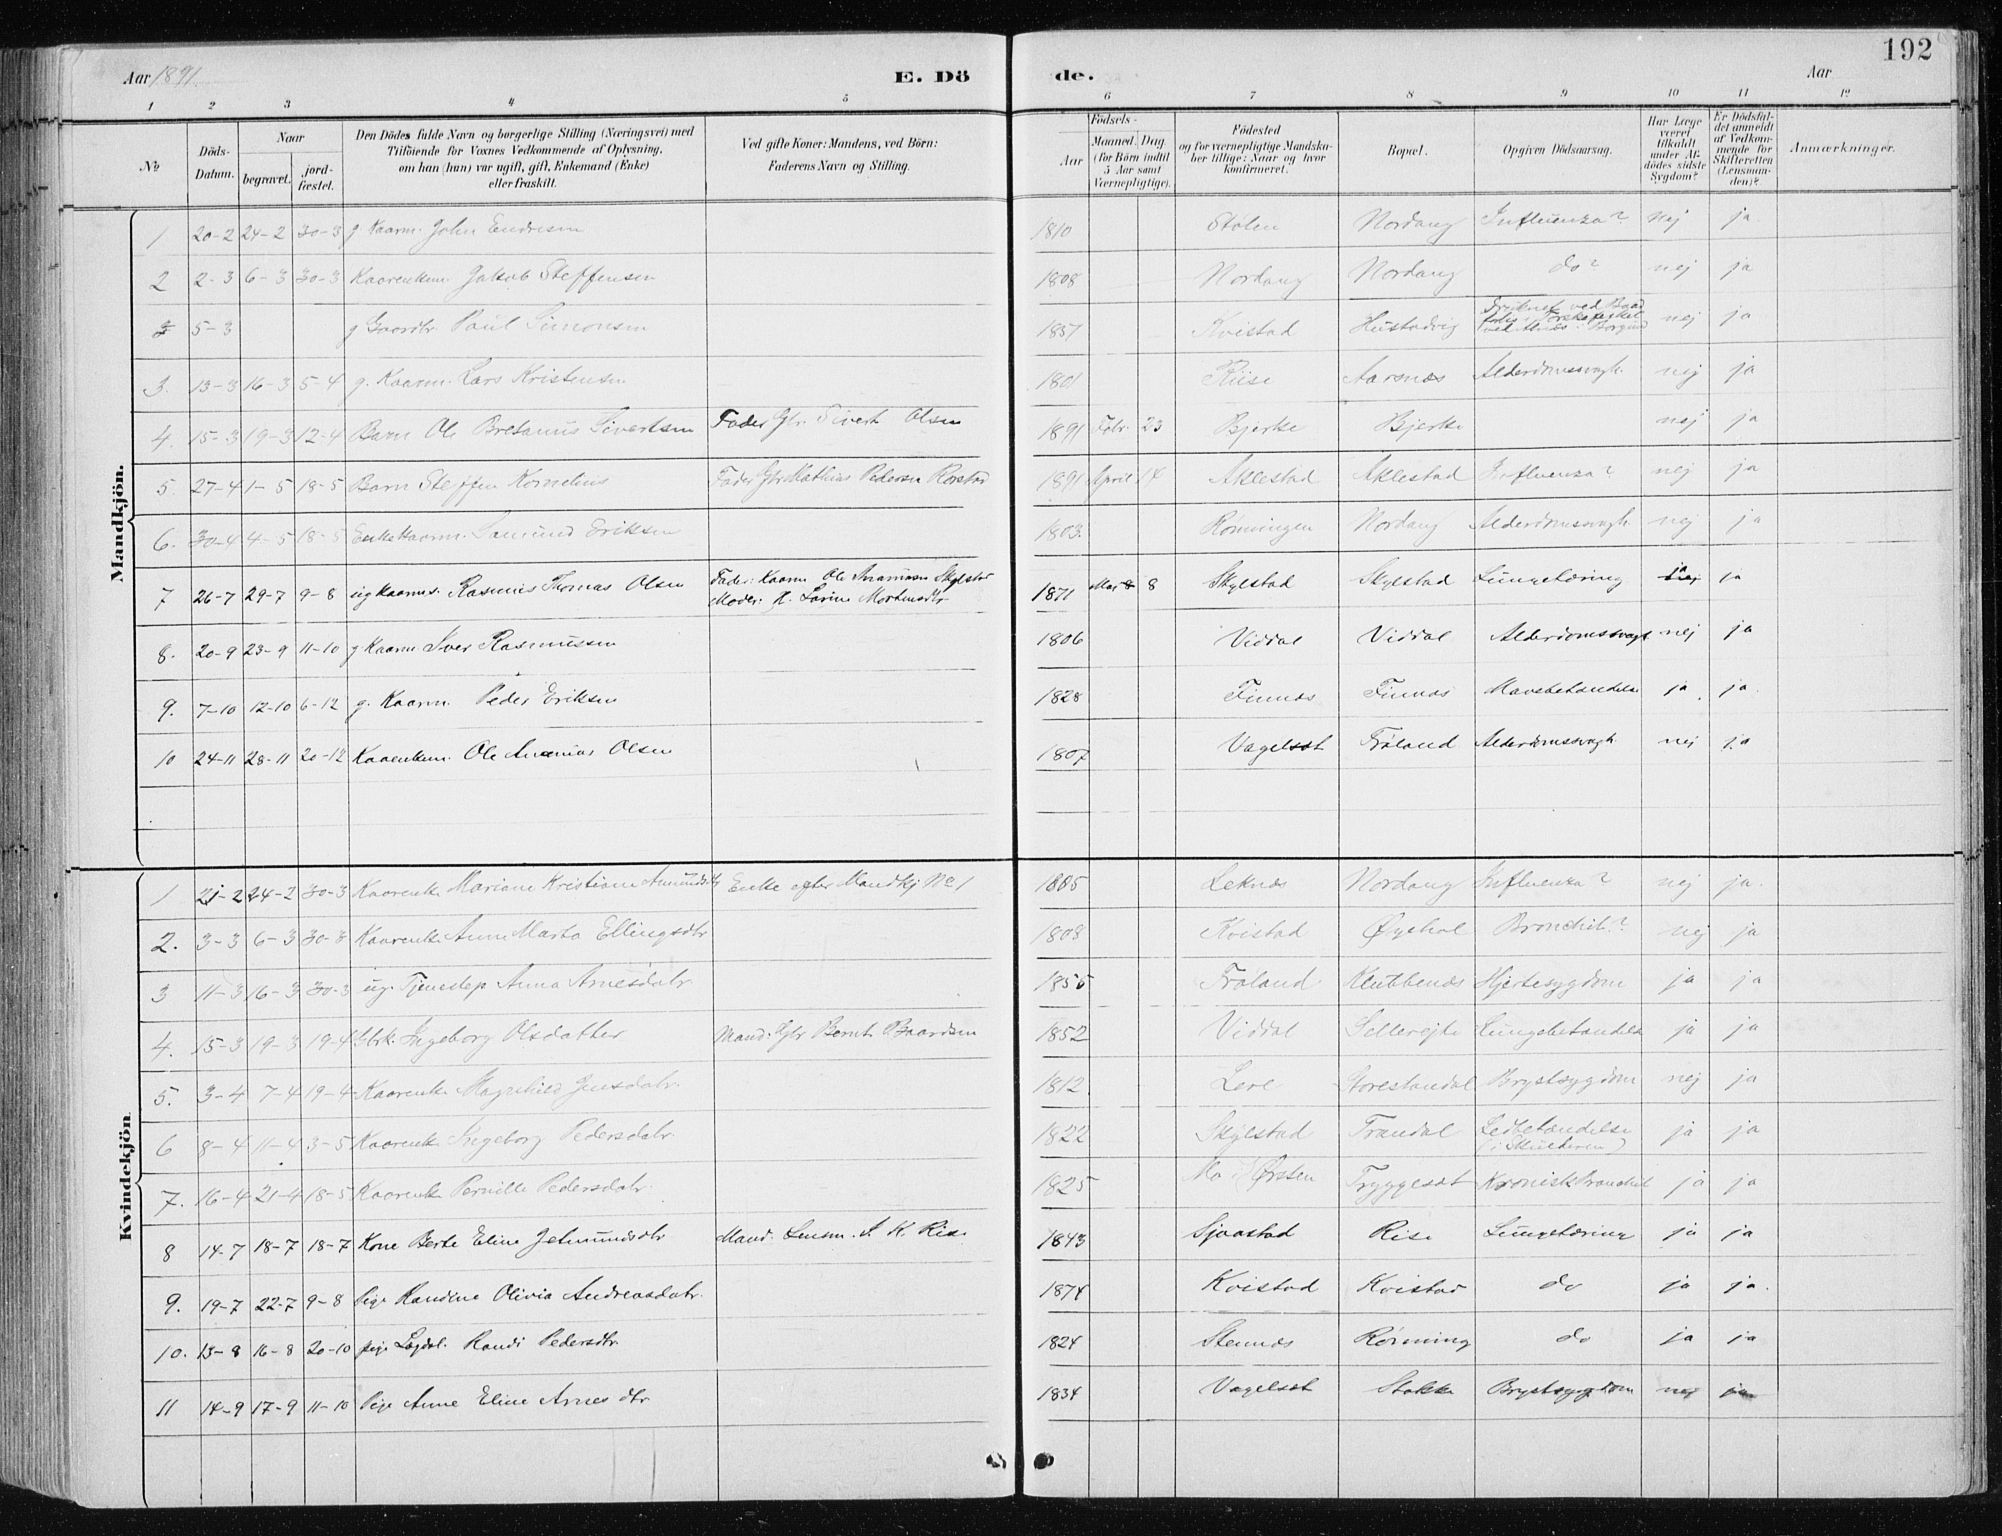 192
Aar 1891. E. Dö de. Aar
1 2 3 4 5 6 7 8 9 10 11 12
№
Döds-Datum.
Naar
begravet. jord-fæstet.
Den Dödes fulde Navn og borgerlige Stilling (Næringsvei) med
Tilföiende for Voxnes Vedkommende af Oplysning,
om han (hun) var ugift, gift, Enkemand (Enke)
eller fraskilt.
Ved gifte Koner: Mandens, ved Börn:
Faderens Navn og Stilling.
Födsels-
Aar
Maaned. Dag.
(for Börn indtil
5 Aar samt
Værnepligtige).
Födested
og for værnepligtige Mandska-
ber tillige: Naar og hvor
konfirmeret.
Bopæl.
Opgiven Dödsaarsag.
Har Læge
været
tilkaldt
under Af-
dödes sidste
Sygdom?
Er Dödsfal-
det anmeldt
af Vedkom-
mende for
Skifteretten
(Lensman-
den)?
Anmærkninger.
Mandkjön.
1 20-2 24-2 30-3 g Kaarm. John Endresen 1810 Stølen Nordang Influenza? nej ja
2 2-3 6-3 30-3 Kaarenkem. Jakob Steffensen 1808 Nordang Nordang do? nej ja
5-3 g Gaardbr. Paul Simonsen 1857 Kvistad Hustadvig nej ja
3. 13-3 16-3 5-4 g. Kaarm. Lars Kristensen 1801 Riise Aarsnæs Alderdomssvagh. nej ja
4. 15-3 19-3 12-4 Barn Ole Bretanus Sivertsen Fader Gbr. Sivert Olsen 1891 Febr. 23 Bjerke Bjerke nej ja
5. 27-4 1-5 18-5 Barn Steffen Kornelius Fader Gbr Mathias Pedersen Rørstad 1891 April 14 Aklestad Aklestad Influenza? nej ja
6. 30-4 4-5 18-5 Enke Kaarm. Samund Eriksen 1803. Rønningen Nordang Alderdomssvagh. nej ja
7 26-7 29-7 9-8 ug Kaarms. Rasmus Thomas Olsen Fader: Kaarm Ole Ananiasen Skylstad
Moder: K. Larine Mortensdtr 1871 8 Skylstad Skylstad Lungetæring ja ja
8. 20-9 23-9 11-10 g Kaarm Iver Rasmussen 1806 Viddal Viddal Alderdomssvagh nej ja
9. 7-10 12-10 6-12 g. Kaarm. Peder Eriksen 1828 Finnæs Finnæs Mavebetændelse ja ja.
10 24-11 28-11 20-12 Kaarenkem. Ole Ananias Olsen 1807 Vagelsæt Frøland Alderdomssvagh. nej ja
Kvindekjön
1 21-2 24-2 30-3 Kaarenke Mariane Kristiane Amundsdtr Enke efter Mandkj No 1 1805 Leknæs Nordang Influenza? nej ja.
2. 3-3 6-3 30-3 Kaarenke Anne Marta Ellingsdtr 1808 Kvistad Øyehol Bronchit.? nej ja
3 11-3 16-3 30-3 ug. Tjenestep Anna Arnesdatr 1855 Frøland Klubbenæs Hjertesygdom ja ja
4. 15-3 19-3 19-4 Gbrk. Ingeborg Olsdatter Mand: Gbr Bernt Baardsen 1852 Viddal Sellereite Lungebetændelse ja ja
5. 3-4 7-4 19-4 Kaarenke Magnhild Jensdatr. 1812 Leve Storestandal Brystsygdom nej ja
6 8-4 11-4 3-5 Kaarenke Ingeborg Pedersdatr. 1822 Skylstad Trandal Ledbetændelse
(i Skulderen) ja ja
7. 16-4 21-4 18-5 Kaarenke Pernille Pedersdatr. 1825 Mo i Ørsten Tryggesæt Kronisk Bronchit ja ja
8 14-7 18-7 18-7 Kone Berte Eline Jetmundsdtr Mand: Lensm. I. K. Rise 1843 Sjaastad Rise Lungetæring ja ja
9. 19-7 22-7 9-8 Pige Randine Olivia Andreasdatr. 1874 Kvistad Kvistad do ja ja.
10. 13-8 16-8 20-10 pige Lægdsl. Randi Pedersdtr 1824 Stennæs Rønning do ja ja
11 14-9 17-9 11-10 Pige Anne Eline Arnesdtr 1834 Vagelsæt Stokke Brystsygdom nej ja